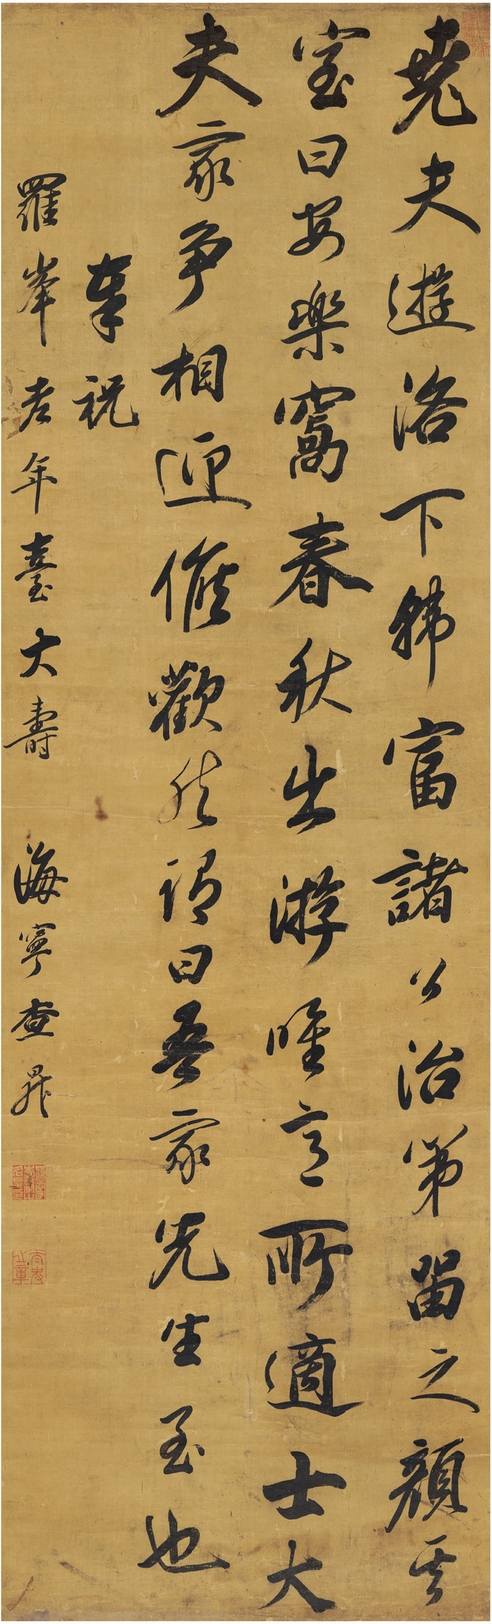 堯夫遊洛下韓富諸公治第留之顏其
室曰安樂窩春秋出游唯意所適士大
夫家爭相迎候歡然謂曰吾家先生至也
奉祝
羅峯老年臺大壽
海寧查昇